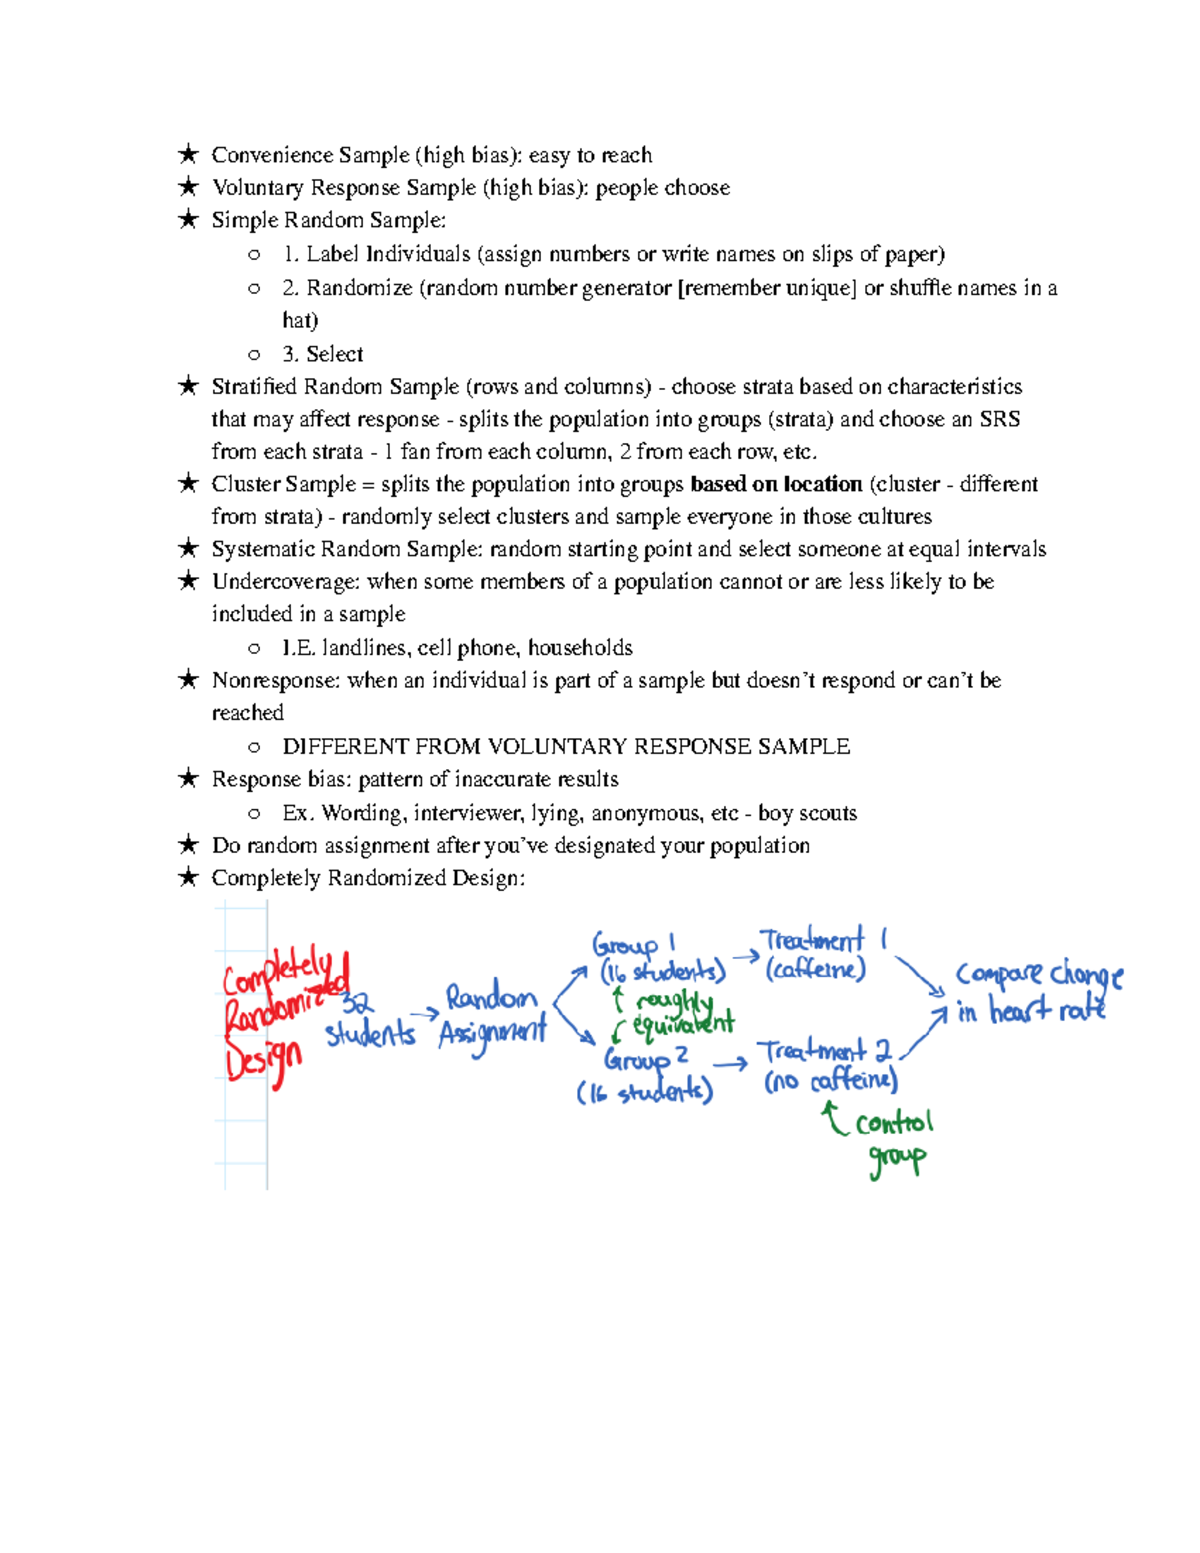 ★ Convenience Sample (high bias): easy to reach
★ Voluntary Response Sample (high bias): people choose
★ Simple Random Sample:
○ 1. Label Individuals (assign numbers or write names on slips of paper)
○ 2. Randomize (random number generator [remember unique] or shuffle names in a
hat)
○ 3. Select
★ Stratified Random Sample (rows and columns) - choose strata based on characteristics
that may affect response - splits the population into groups (strata) and choose an SRS
from each strata - 1 fan from each column, 2 from each row, etc.
★ Cluster Sample = splits the population into groups based on location (cluster - different
from strata) - randomly select clusters and sample everyone in those cultures
★ Systematic Random Sample: random starting point and select someone at equal intervals
★ Undercoverage: when some members of a population cannot or are less likely to be
included in a sample
○ I.E. landlines, cell phone, households
★ Nonresponse: when an individual is part of a sample but doesn’t respond or can’t be
reached
○ DIFFERENT FROM VOLUNTARY RESPONSE SAMPLE
★ Response bias: pattern of inaccurate results
○ Ex. Wording, interviewer, lying, anonymous, etc - boy scouts
★ Do random assignment after you’ve designated your population
★ Completely Randomized Design:
Completely
Randomized
Design
32
students
→ Random
Assignment
Group 1
(16 students)
↑ roughly
↓ equivalent
Group 2
(16 students)
→ Treatment 1
(caffeine)
→ Treatment 2
(no caffeine)
control
group
Compare change
in heart rate